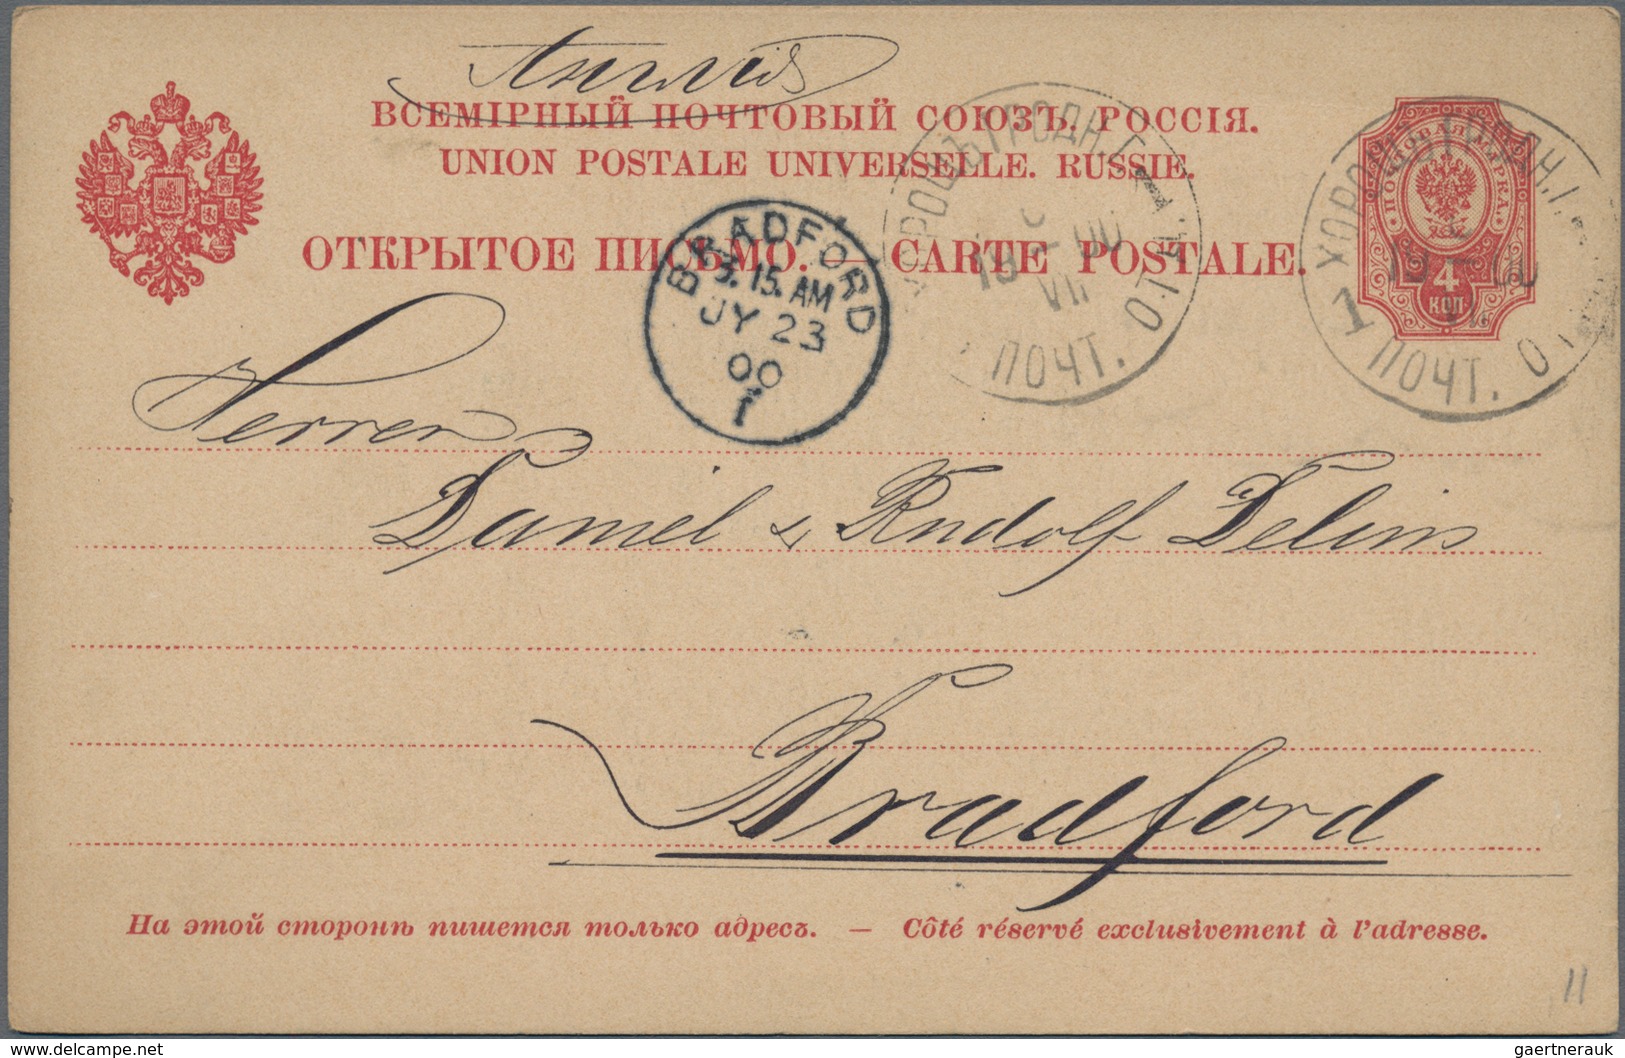 Англія
ВСЕМІРНЫЙ ПОЧТОВЫЙ СОЮЗЪ. РОССІЯ.
UNION POSTALE UNIVERSELLE. RUSSIE.
ОТКРЫТОЕ ПИСЬМО. — CARTE POSTALE.
ПОЧТОВАЯ МАРКА
4
КОП
BRADFORD
3.15.AM
JY 23
00
1
ХОРОЩЪ ГРОДН. Г.
ПОЧТ. ОТ
VII
ХОРОЩЪ ГРОДН. Г.
1 ПОЧТ. О
Herren
Daniel & Rudolf Delius
Bradford
На этой сторонѣ пишется только адресъ. — Côté réservé exclusivement à l'adresse.
11
delcampe.net
gaertnerauk